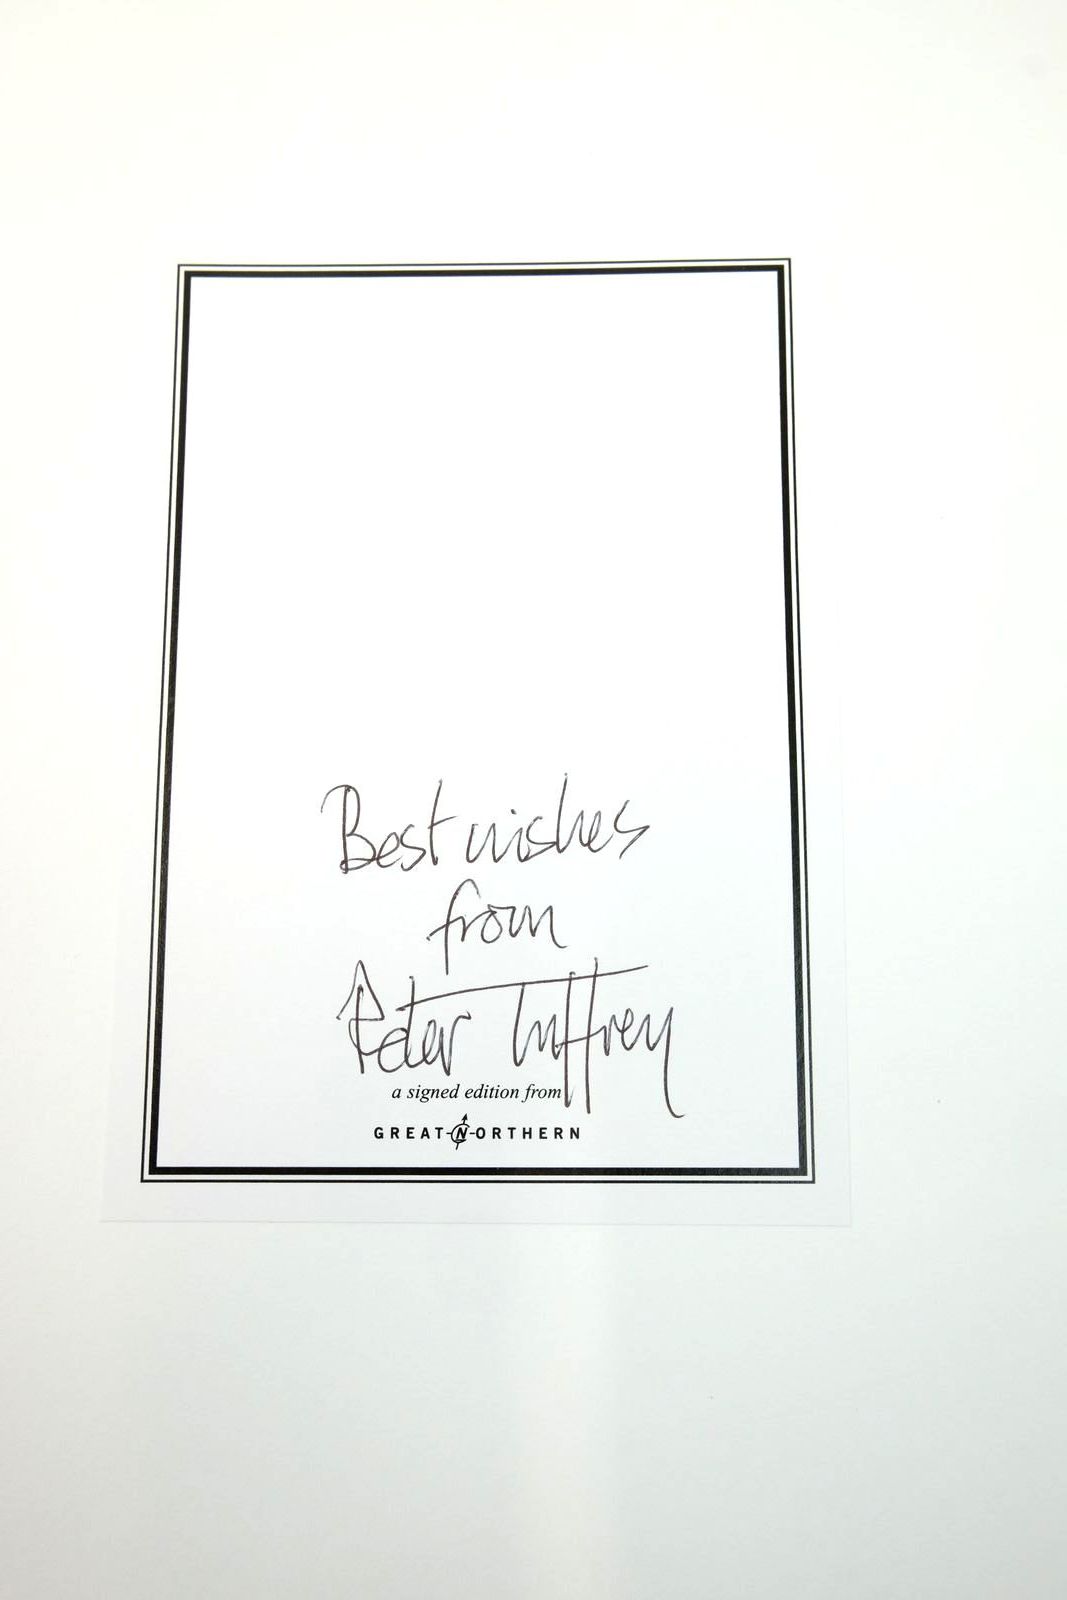 Best wishes
from
Peter Tuffrey
a signed edition from
GREAT NORTHERN